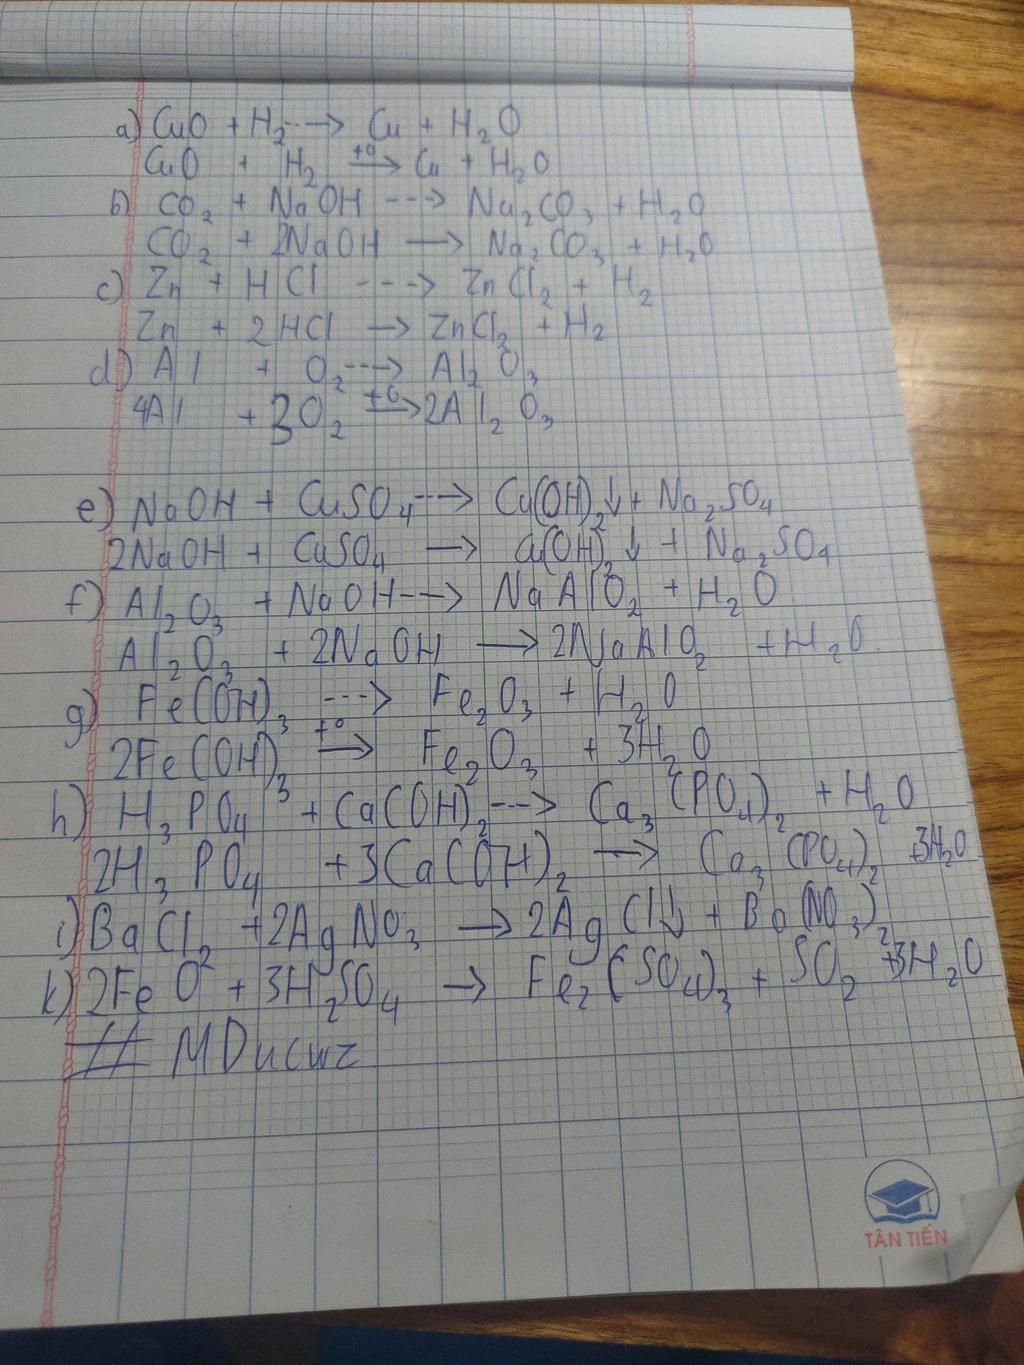 a) CuO + H₂ ---> Cu + H₂O
CuO + H₂ —t°→ Cu + H₂O
b) CO₂ + NaOH ---> Na₂CO₃ + H₂O
CO₂ + 2NaOH → Na₂CO₃ + H₂O
c) Zn + HCl ---> ZnCl₂ + H₂
Zn + 2HCl → ZnCl₂ + H₂
d) Al + O₂ ---> Al₂O₃
4Al + 3O₂ —t°→ 2Al₂O₃
e) NaOH + CuSO₄ ---> Cu(OH)₂↓ + Na₂SO₄
2NaOH + CuSO₄ → Cu(OH)₂↓ + Na₂SO₄
f) Al₂O₃ + NaOH ---> NaAlO₂ + H₂O
Al₂O₃ + 2NaOH → 2NaAlO₂ + H₂O.
g) Fe(OH)₃ ---> Fe₂O₃ + H₂O
2Fe(OH)₃ —t°→ Fe₂O₃ + 3H₂O
h) H₃PO₄ + Ca(OH)₂ ---> Ca₃(PO₄)₂ + H₂O
2H₃PO₄ + 3Ca(OH)₂ → Ca₃(PO₄)₂ + 3H₂O
i) BaCl₂ + 2AgNO₃ → 2AgCl↓ + Ba(NO₃)₂
k) 2FeO + 3H₂SO₄ → Fe₂(SO₄)₃ + SO₂ + 3H₂O
# MDucwz
TÂN TIẾN